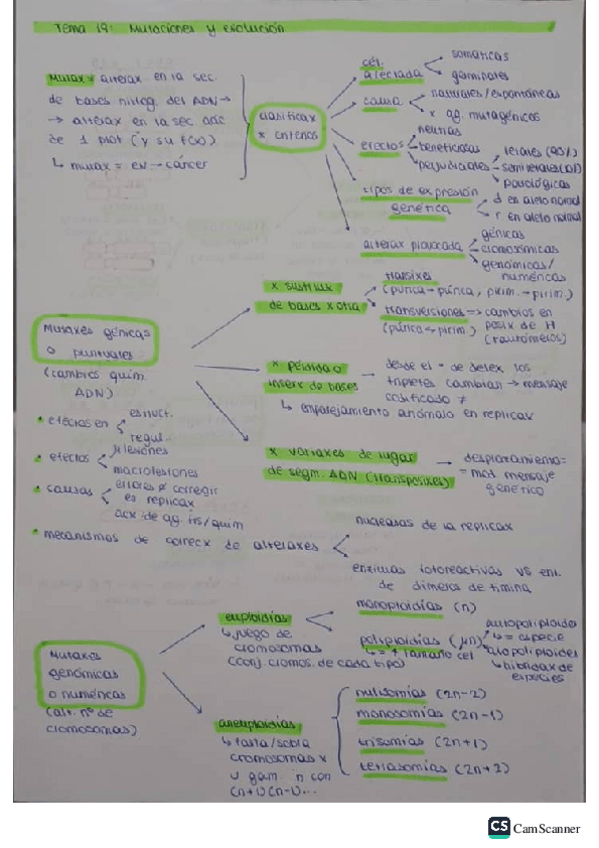 Tema 19: Mutaciones y evolución
Mutax = alterax en la sec.
de bases nitrog. del ADN →
→ alterax en la sec aac
de 1 prot (y su f(x))
↳ mutax = ev → cáncer
clasificax
x criterios
cél.
afectada
somáticas
germinales
causa
naturales / espontáneas
x ag. mutagénicos
efectos
neutras
beneficiosas
perjudiciales
letales (90%)
semiletales
patológicas
tipos de expresión
genética
d en alelo normal
r en alelo normal
alterax provocada
génicas
cromosómicas
genómicas /
numéricas
Mutaxes génicas
o puntuales
(cambios quím.
ADN)
x sustitux
de bases x otra
transixes
(púrica → púrica, pirim. → pirim.)
transversiones => cambios en
(púrica ↔ pirim.) posix de H
(tautómeros)
x pérdida o
inserx de bases
desde el - de delex los
tripletes cambian → mensaje
codificado ≠
↳ emparejamiento anómalo en replicax
x variaxes de lugar
de segm. ADN (transposixes)
desplazamiento =
= mod. mensaje
genético
* efectos en
estruct.
regul.
* efectos
μlesiones
macrolesiones
* causas
errores ≠ corregir
es replicax
acx de ag. fís/quim
* mecanismos de correcx de alteraxes
nucleasas de la replicax
enzimas fotoreactivas VS ent.
de dímeros de timina
Mutaxes
genómicas
o numéricas
(alt. nº de
cromosomas)
euploidías
↳ juego de
cromosomas
(conj. cromos. de cada tipo)
monoploidías (n)
poliploidías (μn)
↳ = ↑ tamaño cél
autopoliploides
↳ = especie
alopoliploides
↳ hibridax de
especies
aneuploidías
↳ falta/sobra
cromosomas x
U gam. n con
(n+1) (n-1)...
nulisomías (2n-2)
monosomías (2n-1)
trisomías (2n+1)
tetrasomías (2n+2)
CS CamScanner